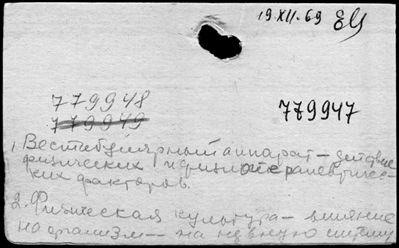 19.XII-69 ЕЦ
779948
779949
779947
1. Вестибулярный аппарат – действие
физических и физиотерапевтичес-
ких факторов.
2. Физическая культура – влияние
на организм – на нервную систему